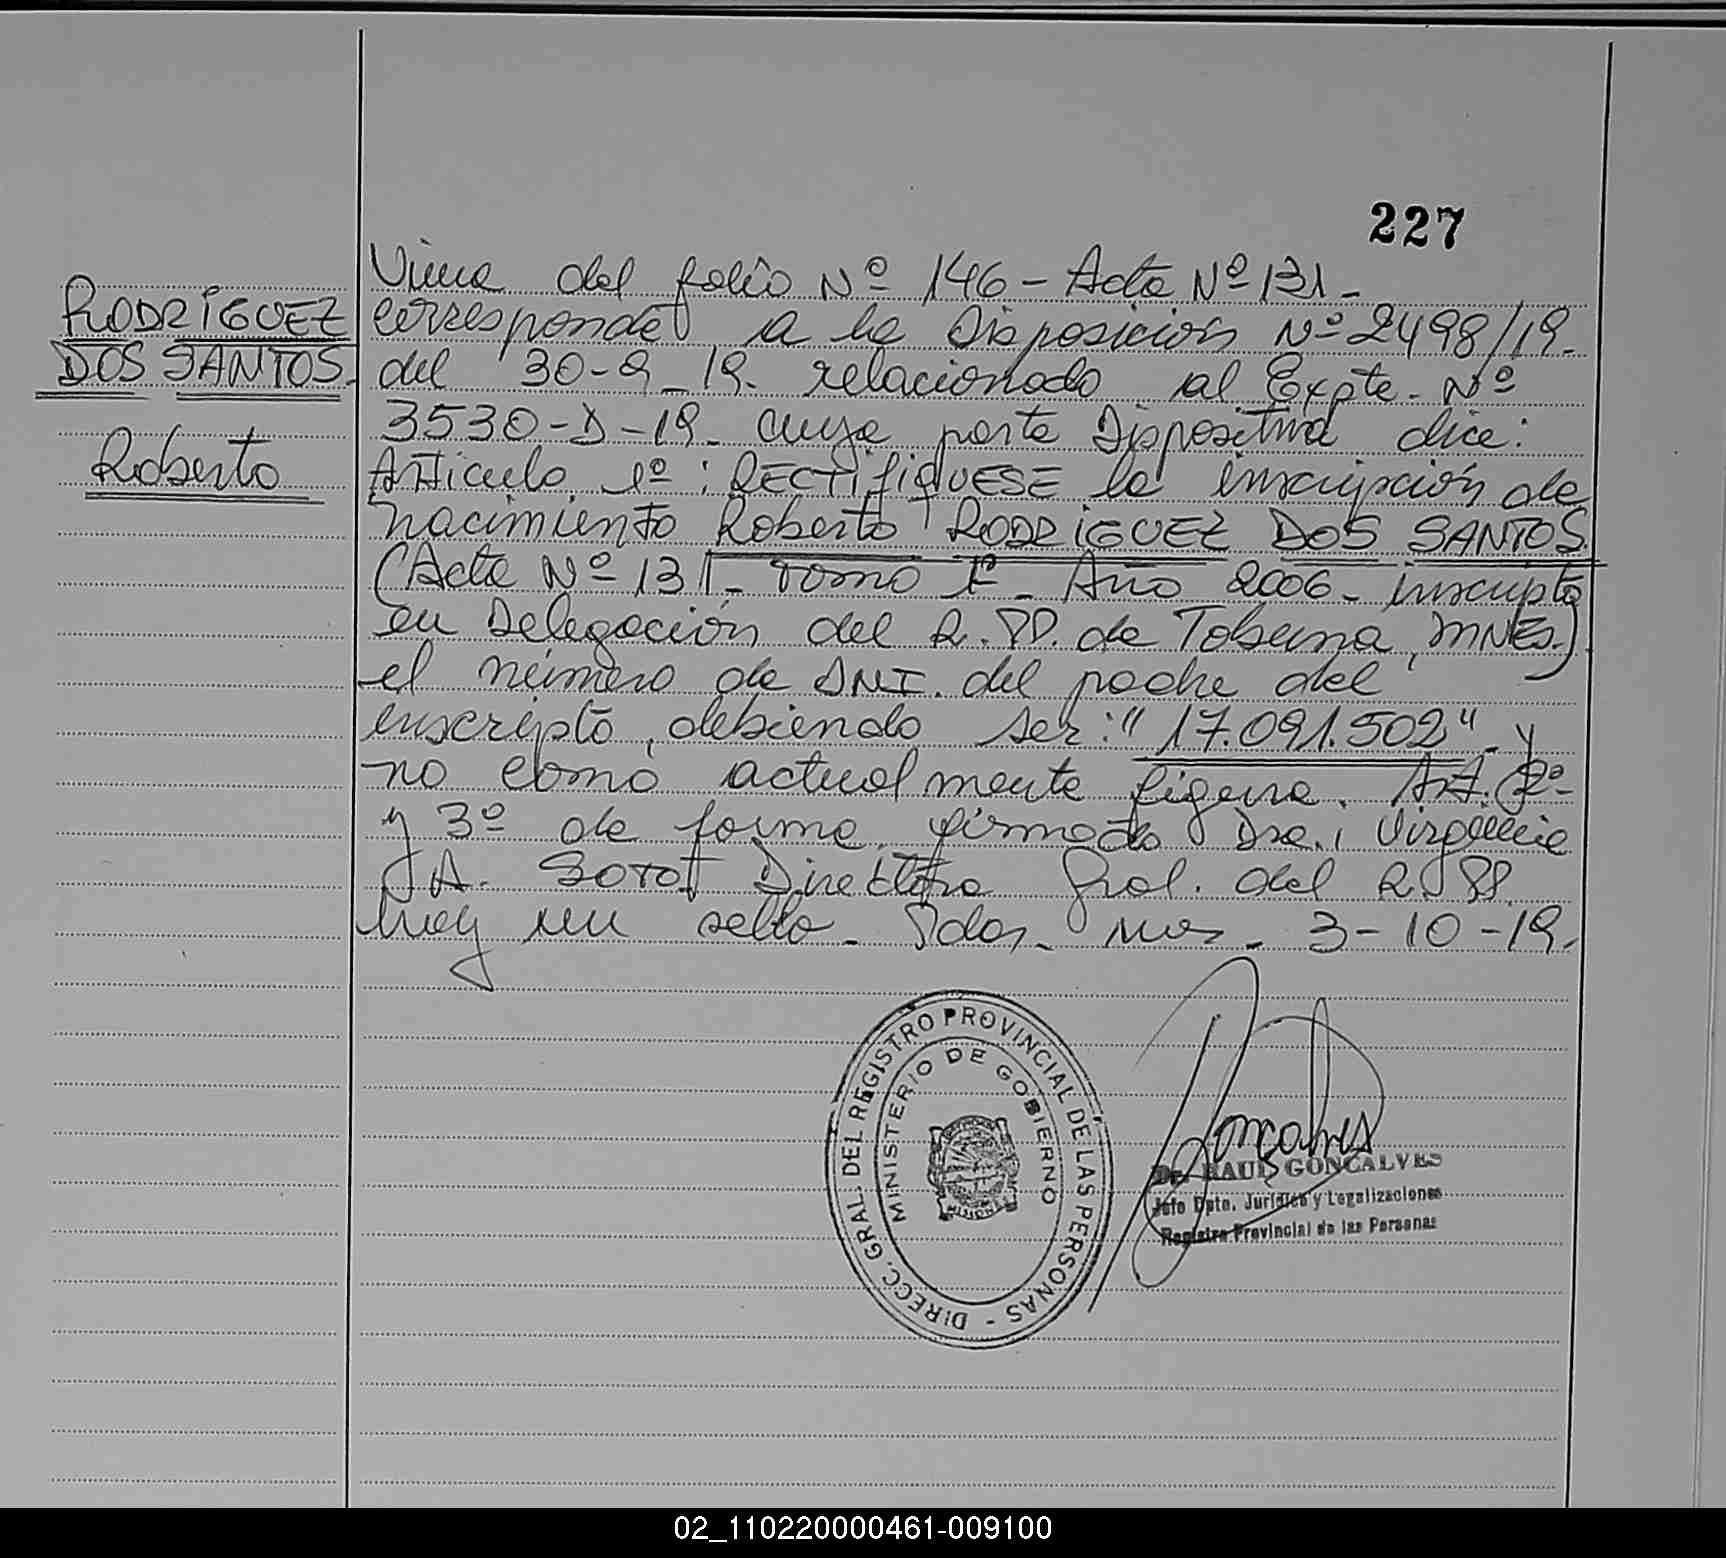 227
RODRIGUEZ
DOS SANTOS.
Roberto
Viene del folio Nº 146 - Acta Nº 131 -
corresponde a la Disposición Nº 2498/19.
del 30-9-19. relacionado al Expte. Nº
3530-D-19. cuya parte Dispositiva dice:
Artículo 1º: RECTIFIQUESE la inscripción de
nacimiento Roberto RODRIGUEZ DOS SANTOS
(Acta Nº 131 - Tomo 1º - Año 2006 - inscripto
en Delegación del R.PP. de Tobuna, MNES.)
el número de DNI. del padre del
inscripto, debiendo ser: "17.091.502" y
no como actualmente figura. Art. 2º
y 3º de forma, firmado Dra. Virginia
A. SOTO Directora Gral. del R.PP.
hay un sello. Pdas. Mnes. 3-10-19.
DIRECC. GRAL. DEL REGISTRO PROVINCIAL DE LAS PERSONAS -
MINISTERIO DE GOBIERNO
MISIONES
Goncalves
Dr. RAUL GONCALVES
Jefe Dpto. Jurídico y Legalizaciones
Registro Provincial de las Personas
02_110220000461-009100